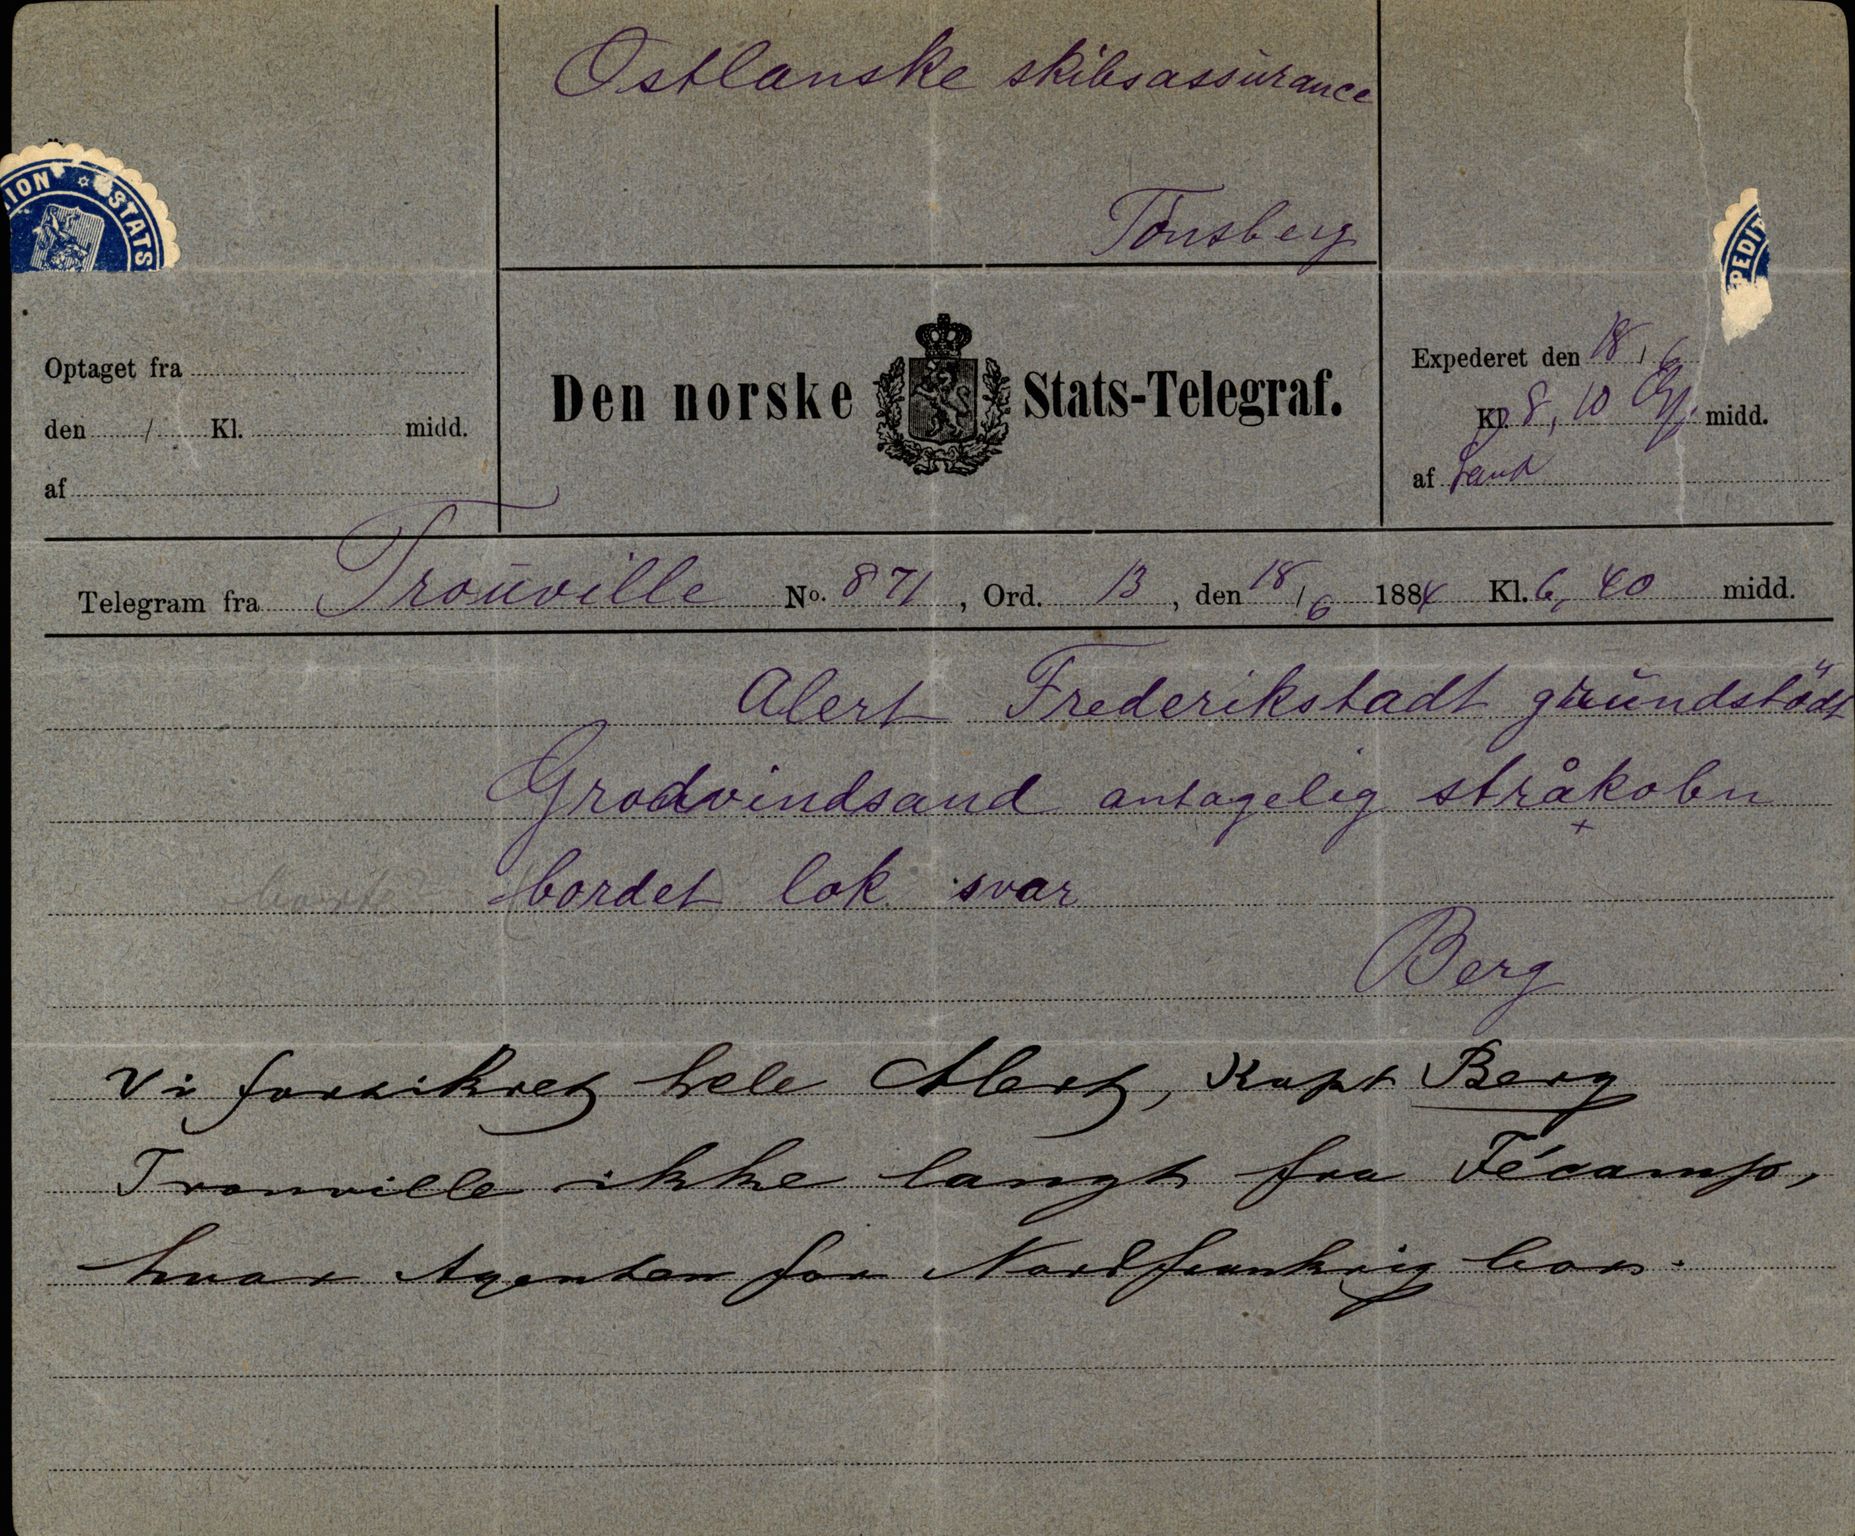 Ostlanske skibsassurance
Tönsberg
TION ✡ STATS
PEDIT
Optaget fra
den / Kl. midd.
af
Den norske Stats-Telegraf.
Expederet den 18/6
Kl. 8,10 midd.
af
Telegram fra Trouville No. 871, Ord. 13, den 18/6 1884 Kl. 6,40 midd.
Alert Frederikstadt grundstödt
Grodvindsand antagelig stråkobn
bordet lak svar
Berg
Vi forsikret hele Alert, Kapt Berg
Trouville ikke langt fra Fécamp,
hvor Agenten for Nordfrankrig bor.